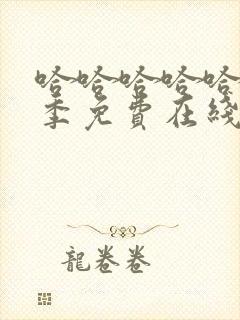 哈哈哈哈哈
季免費在綫
龍卷卷